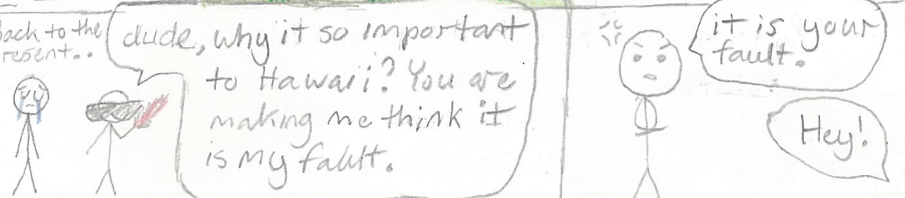 back to the
resent...
dude, why it so important
to Hawaii? You are
making me think it
is my fault.
it is your
fault.
Hey!